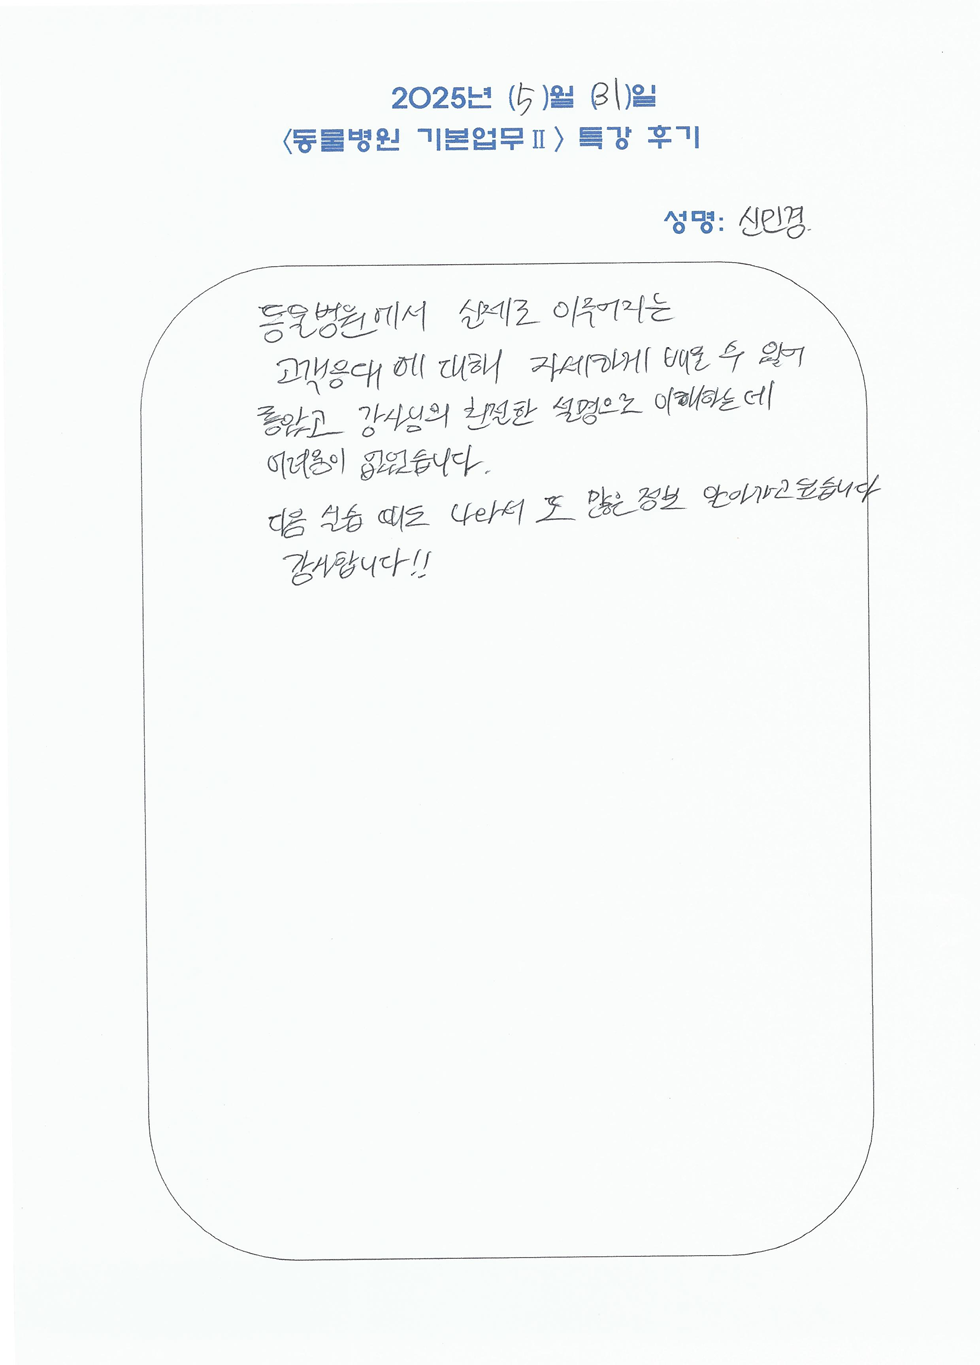 2025년 (5)월 (31)일
<동물병원 기본업무Ⅱ> 특강 후기
성명: 신민경.
동물병원에서 실제로 이루어지는
고객응대에 대해 자세하게 배울 수 있어
좋았고 강사님의 친절한 설명으로 이해하는데
어려움이 없었습니다.
다음 실습 때도 나와서 또 많은 정보 알아가고 싶습니다
감사합니다!!